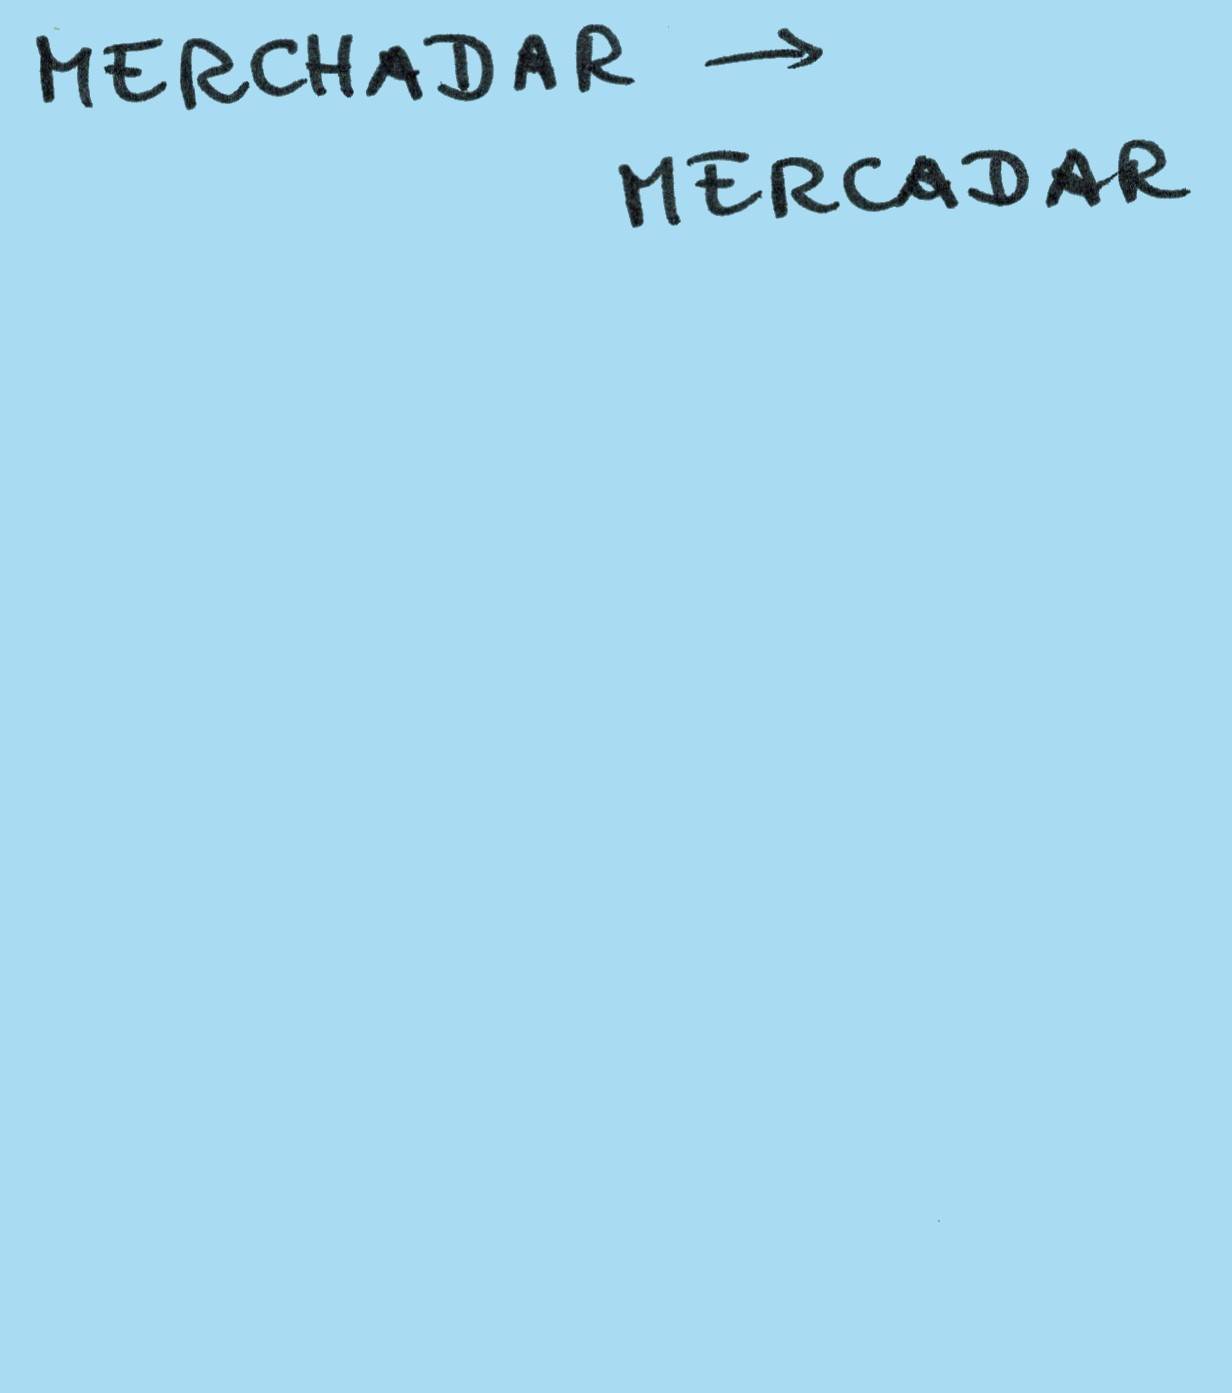 MERCHADAR →
MERCADAR